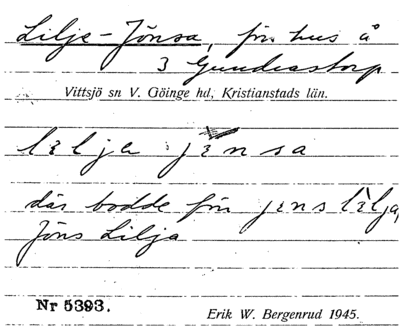 Lilje-Jönsa, f.n. hus å
3 Gundrastorp
Vittsjö sn V. Göinge hd, Kristianstads län.
lɛlja jɛnsa
där bodde förr jɛns lɛ̀lja,
Jöns Lilja
Nr 5393.
Erik W. Bergenrud 1945.